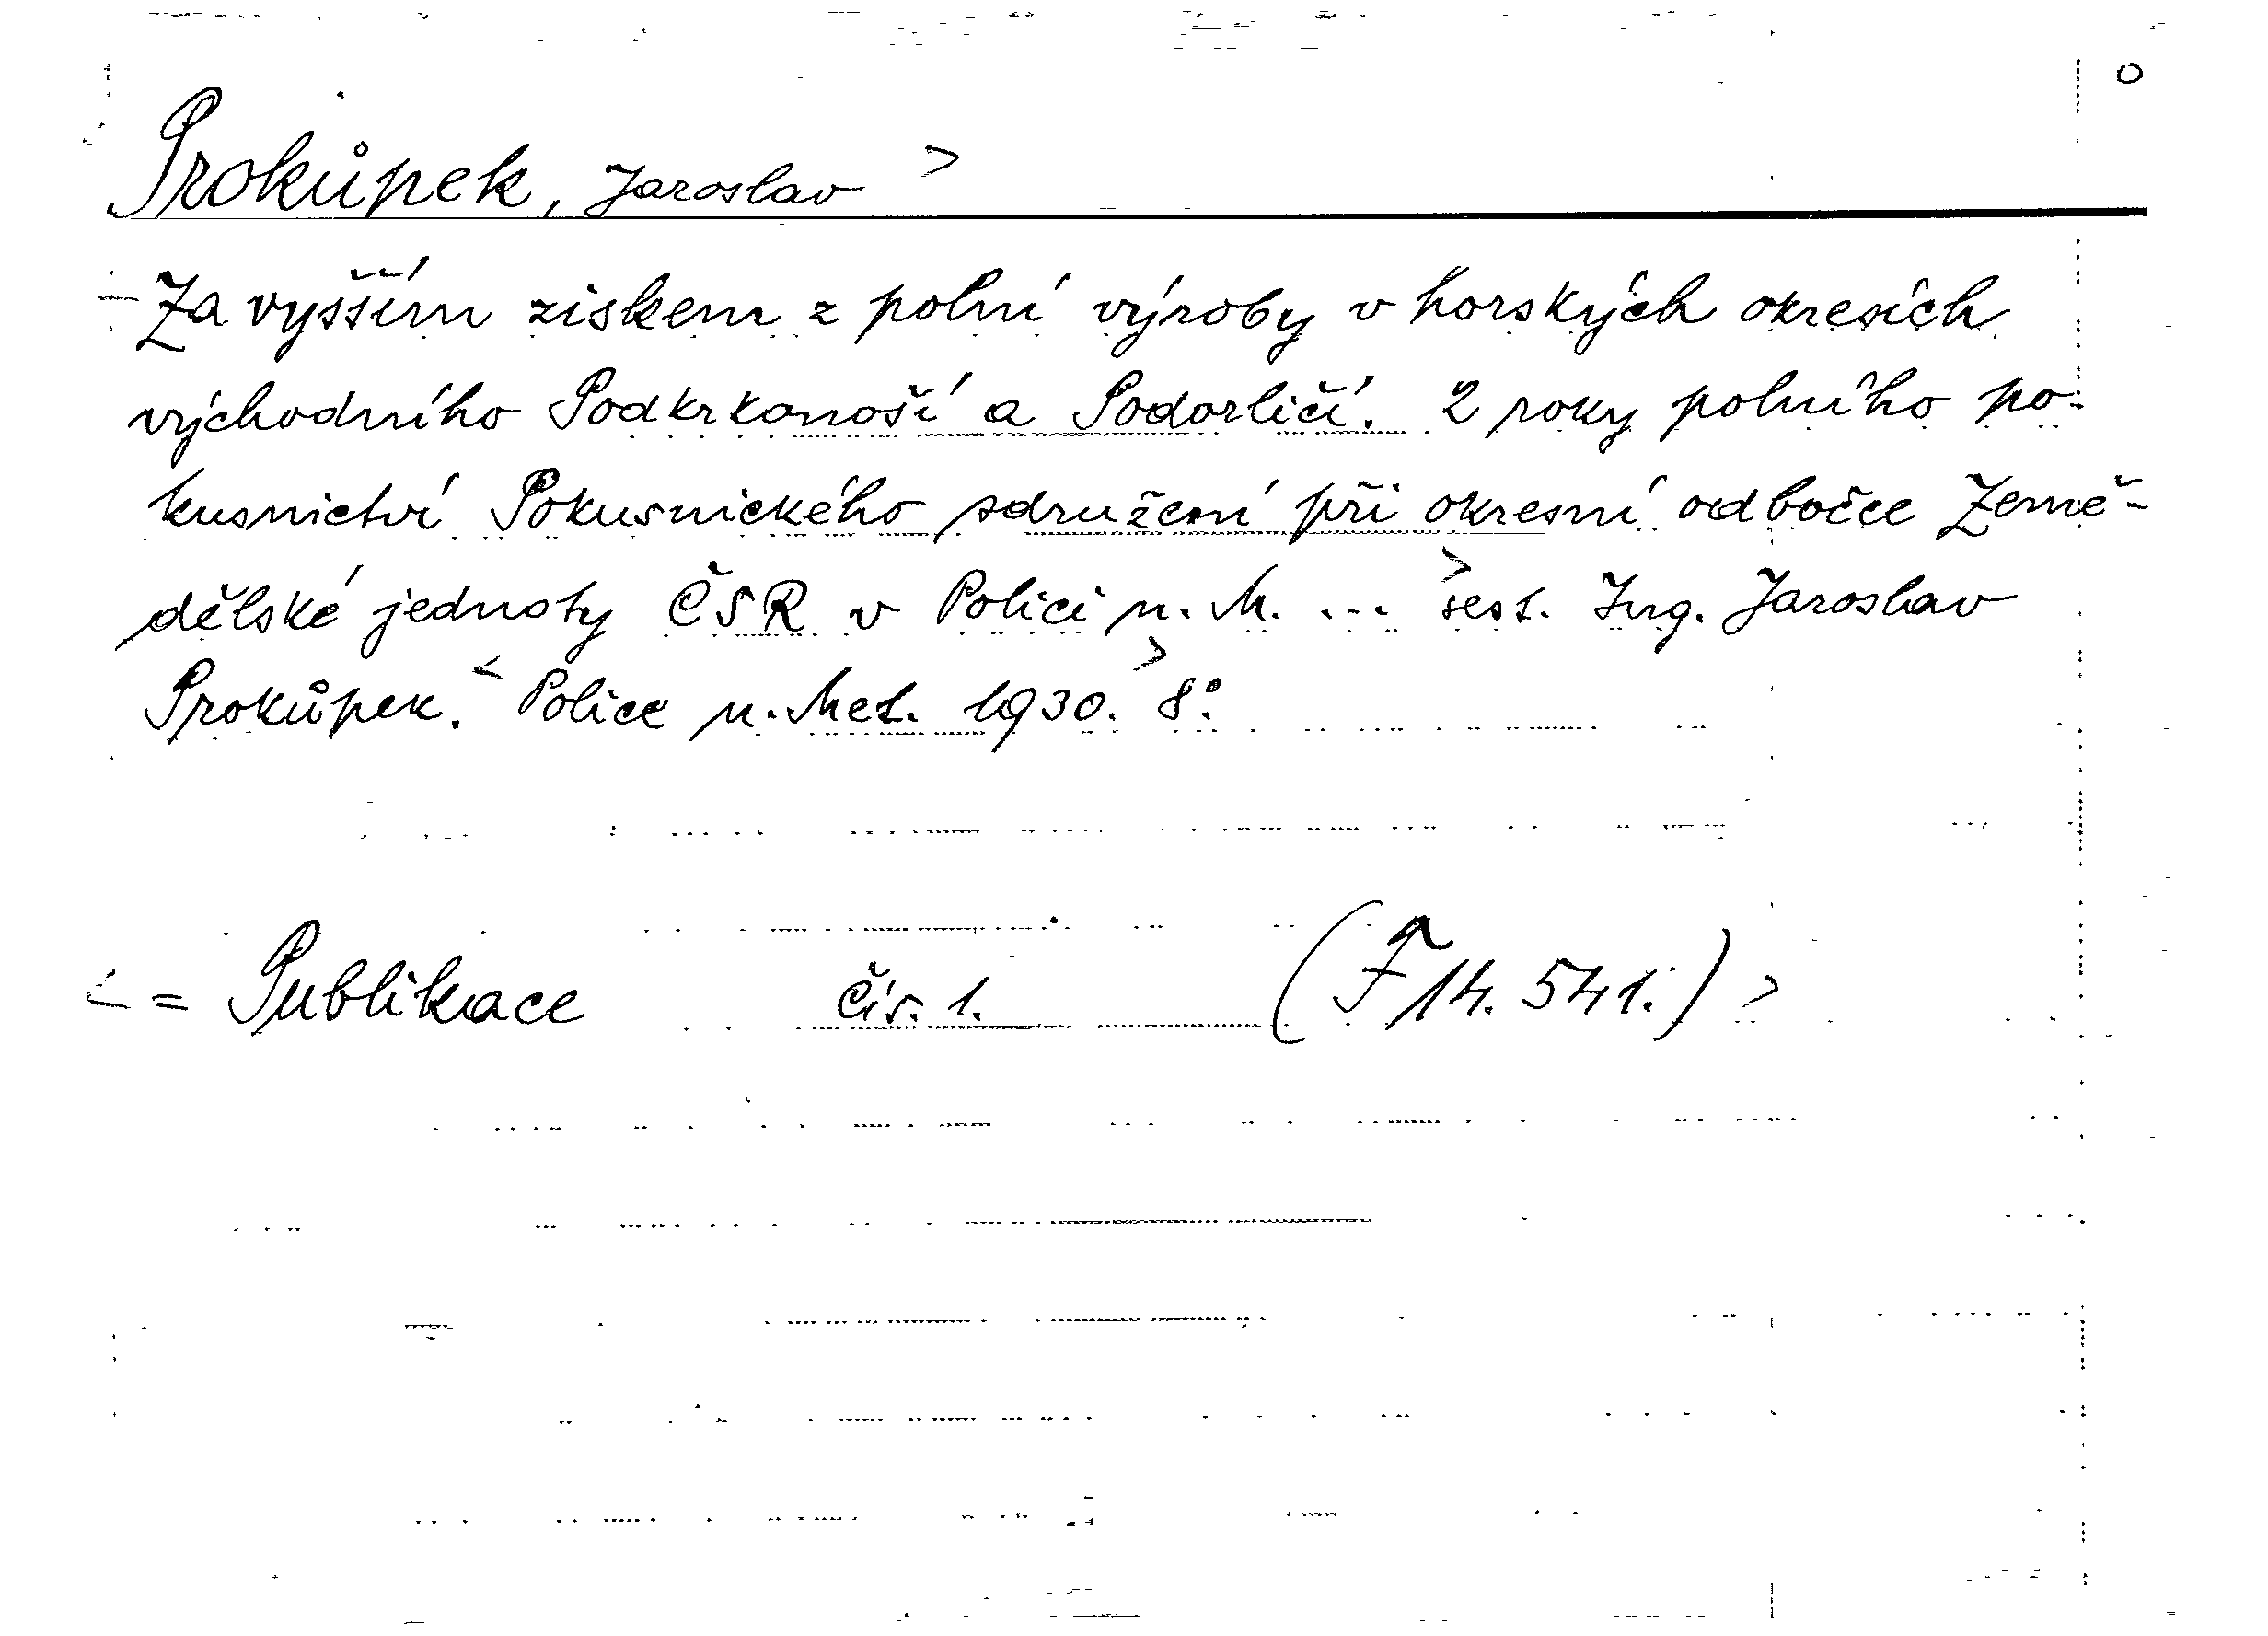 O
Prokůpek, Jaroslav >
Za vyšším ziskem z polní výroby v horských okresích
východního Podkrkonoší a Podorličí. 2 roky polního po-
kusnictví Pokusnického sdružení při okresní odbočce Země-
dělské jednoty ČSR v Polici n. M. ... > sest. Ing. Jaroslav
Prokůpek. < Police n. Met. 1930. > 8°.
< = Publikace čís. 1. (F 14.541.) >